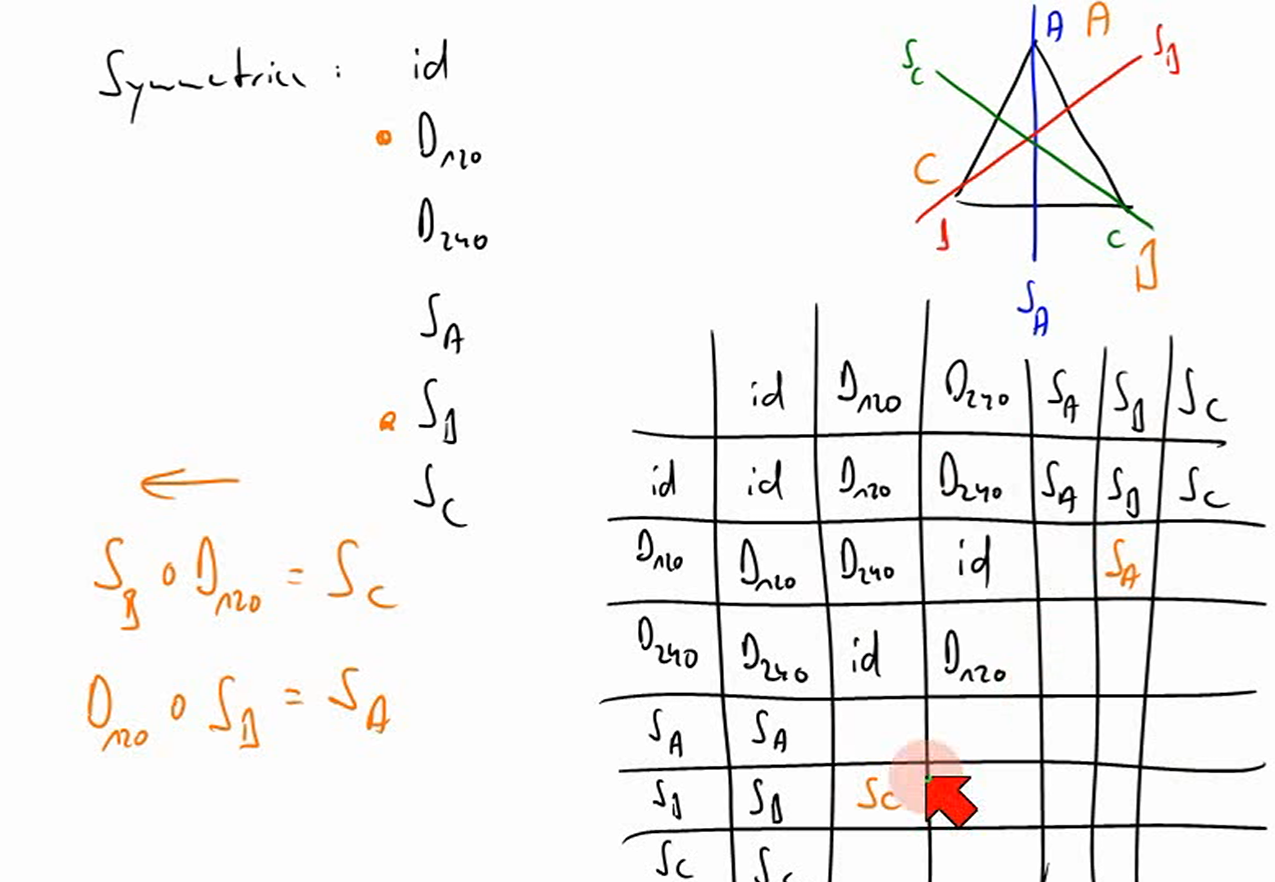 Symmetrien : id
D120
D240
SA
SB
SC
←
SB ∘ D120 = SC
D120 ∘ SB = SA
A A
SC SB
C
B C B
SA
id D120 D240 SA SB SC
id id D120 D240 SA SB SC
D120 D120 D240 id SA
D240 D240 id D120
SA SA
SB SB SC
SC SC